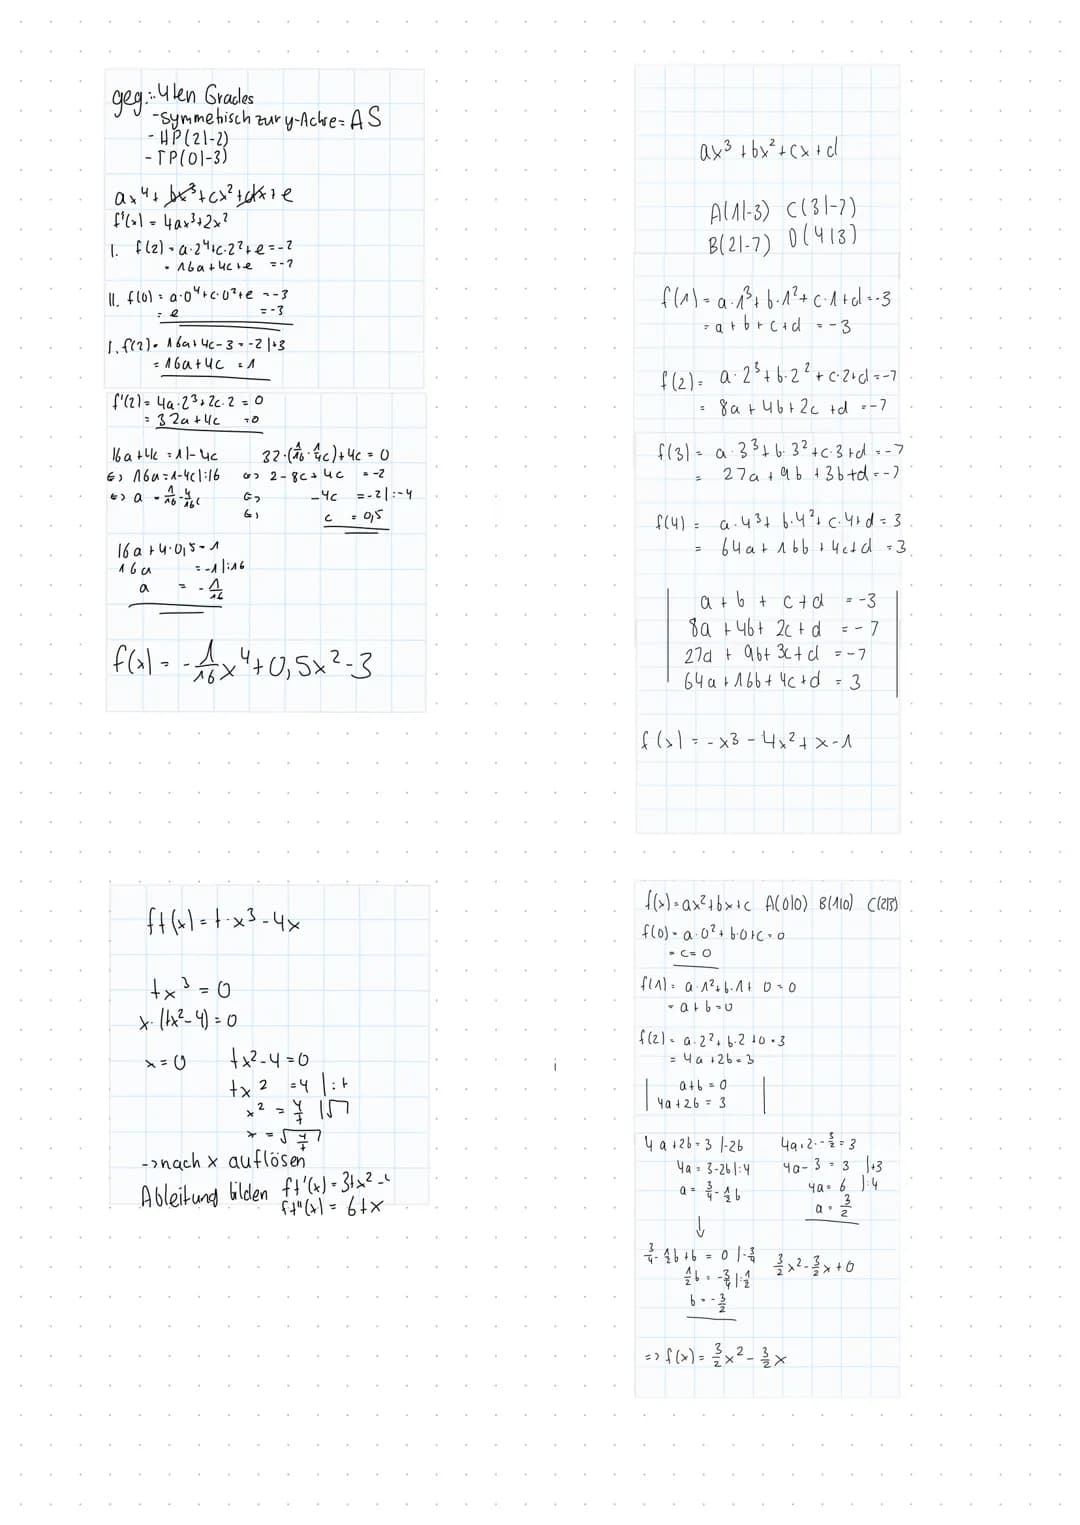 geg.: 4ten Grades
-symmetrisch zur y-Achse = AS
- HP(2|-2)
- TP(0|-3)
ax⁴ + bx³ + cx² + dx + e
f'(x) = 4ax³+2x²
I. f(2) = a·2⁴+c·2²+e = -2
= 16a+4c+e = -2
II. f(0) = a·0⁴+c·0²+e = -3
= e = -3
I. f(2) = 16a+4c-3 = -2 |+3
= 16a+4c = 1
f'(2) = 4a·2³+2c·2 = 0
= 32a+4c = 0
16a+4c = 1 |-4c
<=> 16a = 1-4c |:16
<=> a = 1/16 - 4/16 c
32·(1/16 · 1/4 c)+4c = 0
<=> 2-8c+4c = -2
<=> -4c = -2 |:-4
<=> c = 0,5
16a+4·0,5 = 1
16a = -1 |:16
a = -1/16
f(x) = -1/16 x⁴+0,5x²-3
ax³+bx²+cx+d
A(1|-3) C(3|-7)
B(2|-7) D(4|3)
f(1) = a·1³+b·1²+c·1+d = -3
= a+b+c+d = -3
f(2) = a·2³+b·2²+c·2+d = -7
= 8a+4b+2c+d = -7
f(3) = a·3³+b·3²+c·3+d = -7
= 27a+9b+3b+d = -7
f(4) = a·4³+b·4²+c·4+d = 3
= 64a+16b+4c+d = 3
a+b+c+d = -3
8a+4b+2c+d = -7
27a+9b+3c+d = -7
64a+16b+4c+d = 3
f(x) = -x³-4x²+x-1
ft(x) = t·x³-4x
tx³ = 0
x·(tx²-4) = 0
x = 0 tx²-4 = 0
tx² = 4 |:t
x² = 4/t |√
x = √(4/t)
-> nach x auflösen
Ableitung bilden ft'(x) = 3tx²-4
ft''(x) = 6tx
f(x) = ax²+bx+c A(0|0) B(1|0) C(2|3)
f(0) = a·0²+b·0+c = 0
= c = 0
f(1) = a·1²+b·1+0 = 0
= a+b = 0
f(2) = a·2²+b·2+0 = 3
= 4a+2b = 3
a+b = 0
4a+2b = 3
4a+2b = 3 |-2b
4a = 3-2b |:4
a = 3/4 - 1/2 b
↓
3/4 - 1/2 b + b = 0 |-3/4
1/2 b = -3/4 |:1/2
b = -3/2
4a+2·-3/2 = 3
4a-3 = 3 |+3
4a = 6 |:4
a = 3/2
3/2 x² - 3/2 x + 0
=> f(x) = 3/2 x² - 3/2 x